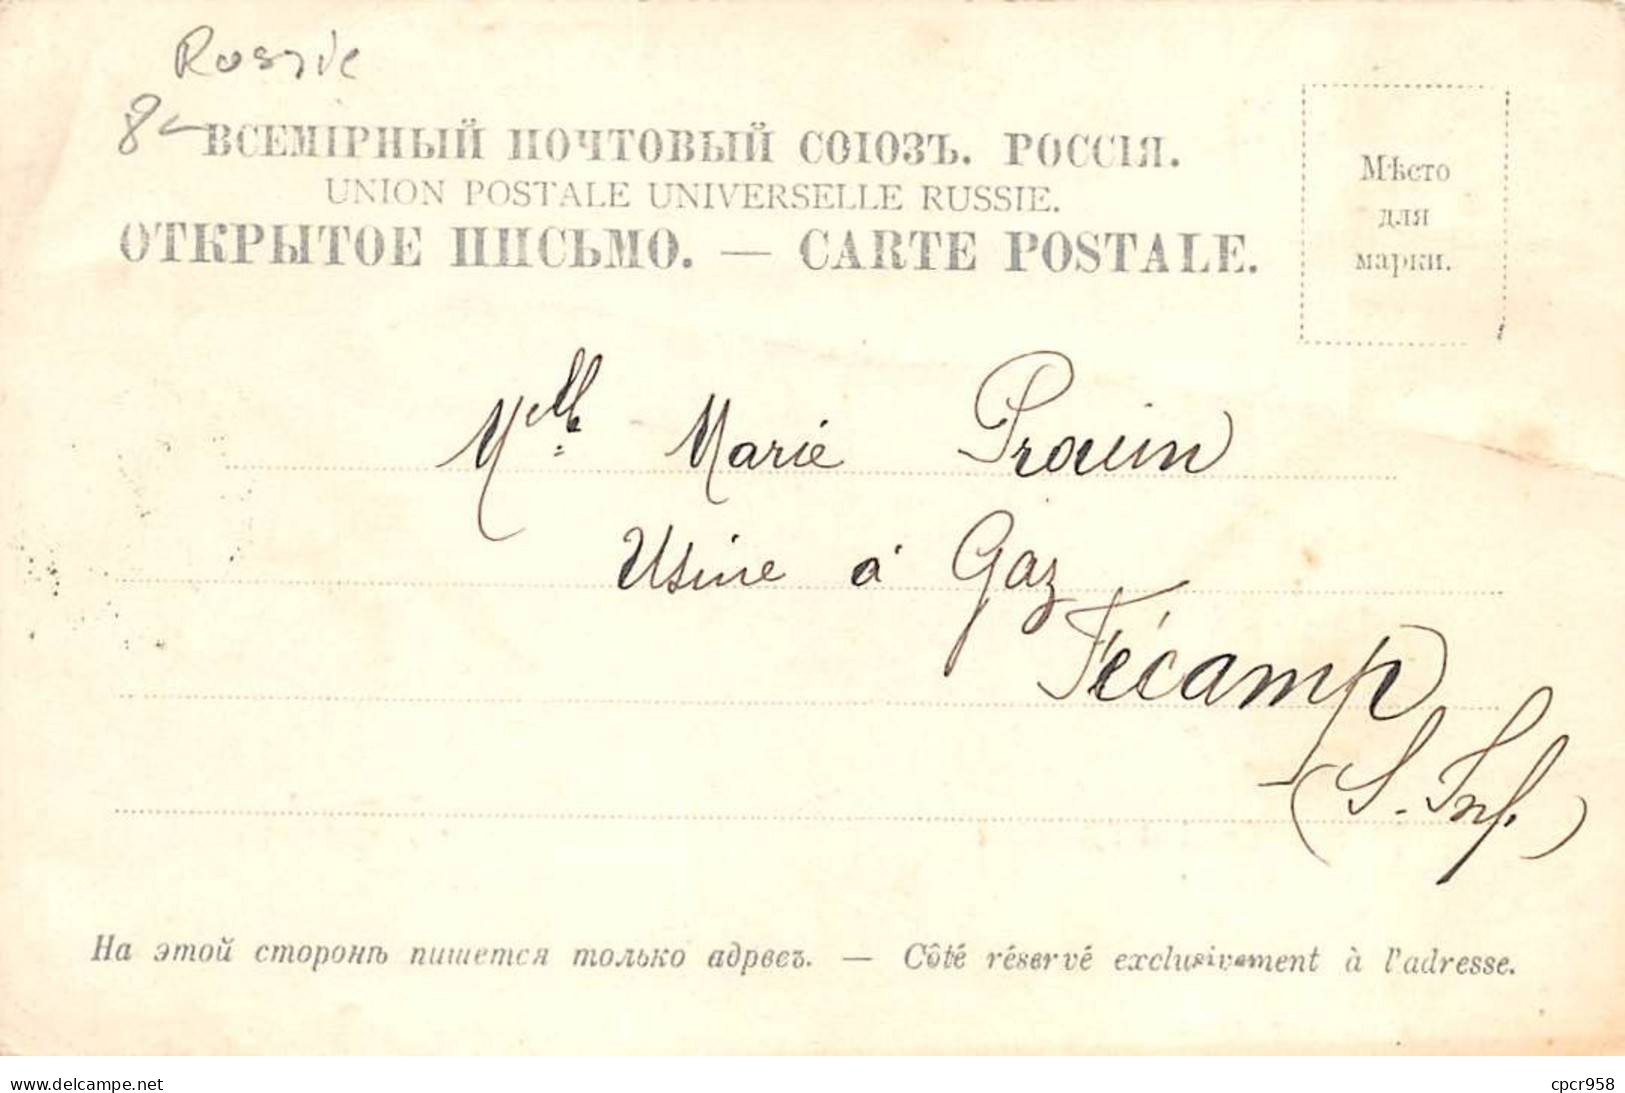 Russie
8-
ВСЕМІРНЫЙ ПОЧТОВЫЙ СОЮЗЪ. РОССІЯ.
UNION POSTALE UNIVERSELLE RUSSIE.
ОТКРЫТОЕ ПИСЬМО. — CARTE POSTALE.
Мѣсто
для
марки.
Melle Marie
Usine à Gaz
Fécamp
(S. Inf.)
На этой сторонѣ пишется только адресъ. — Côté réservé exclusivement à l'adresse.
www.delcampe.net
cpcr958